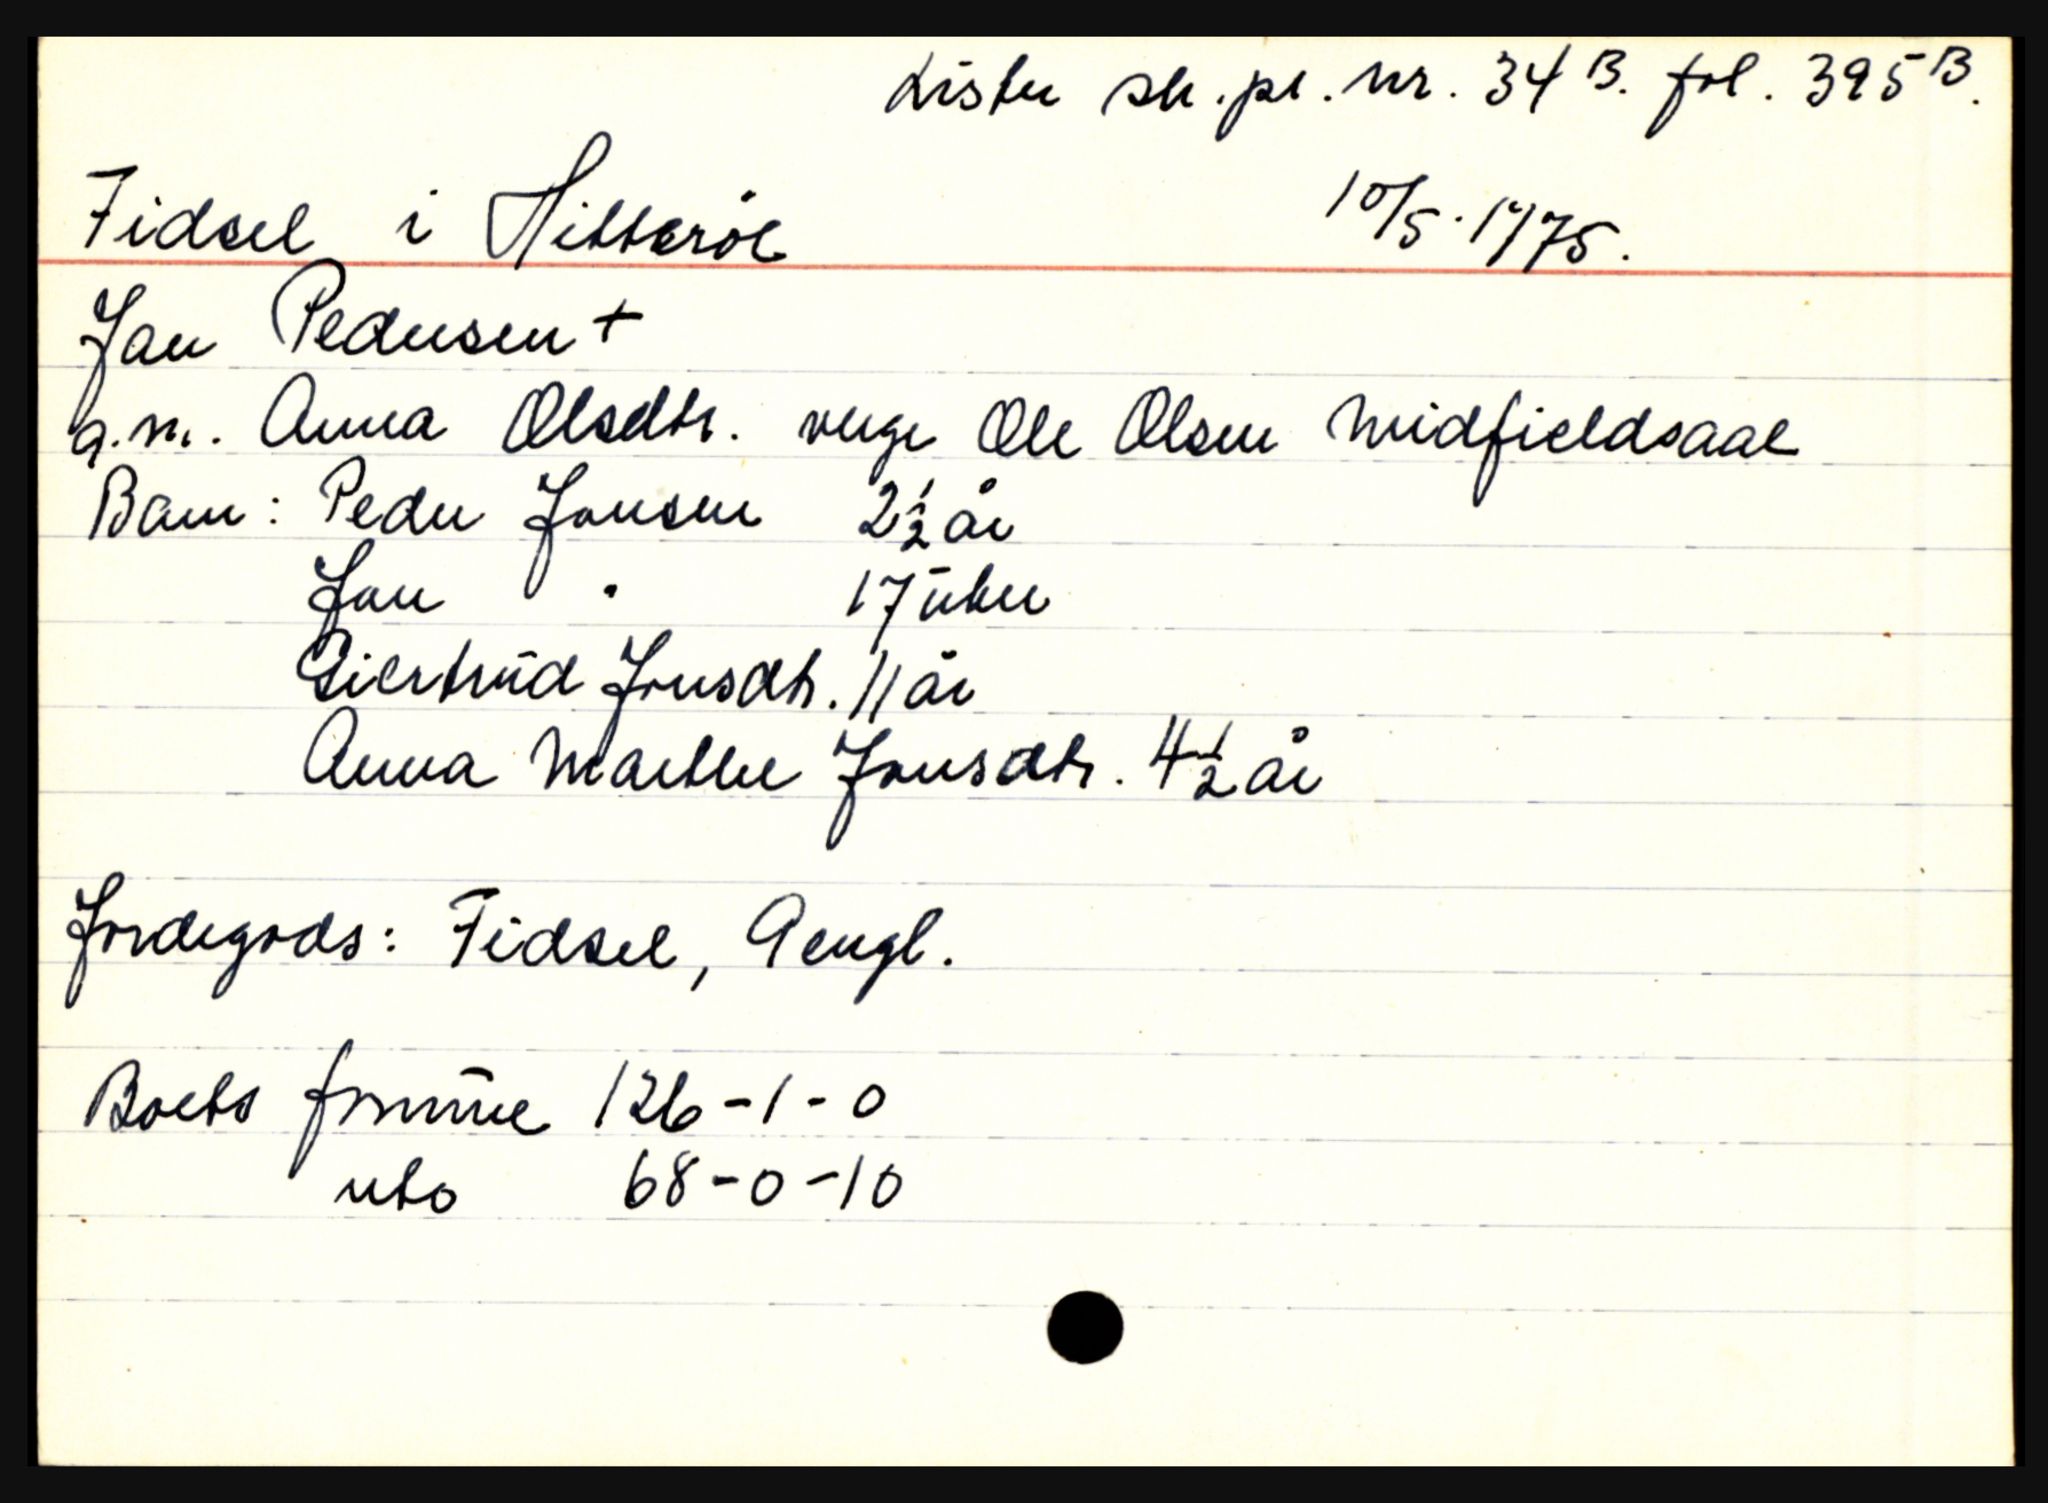 Lister sk.pr. nr. 34 B. fol. 395 B.
Fidsel i Hitterøe 10/5.1775.
Jan Pedersen +
g.m. Anna Olsdtr. verge Ole Olsen Midfieldsaae
Barn: Peder Jansen 2 1/2 år
Jan " 17 uker
Giertrud Jansdtr. 11 år
Anna Marthe Jansdtr. 4 1/2 år
Jordegods: Fidsel, 9 engl.
Boets formue 126-1-0
nto 68-0-10